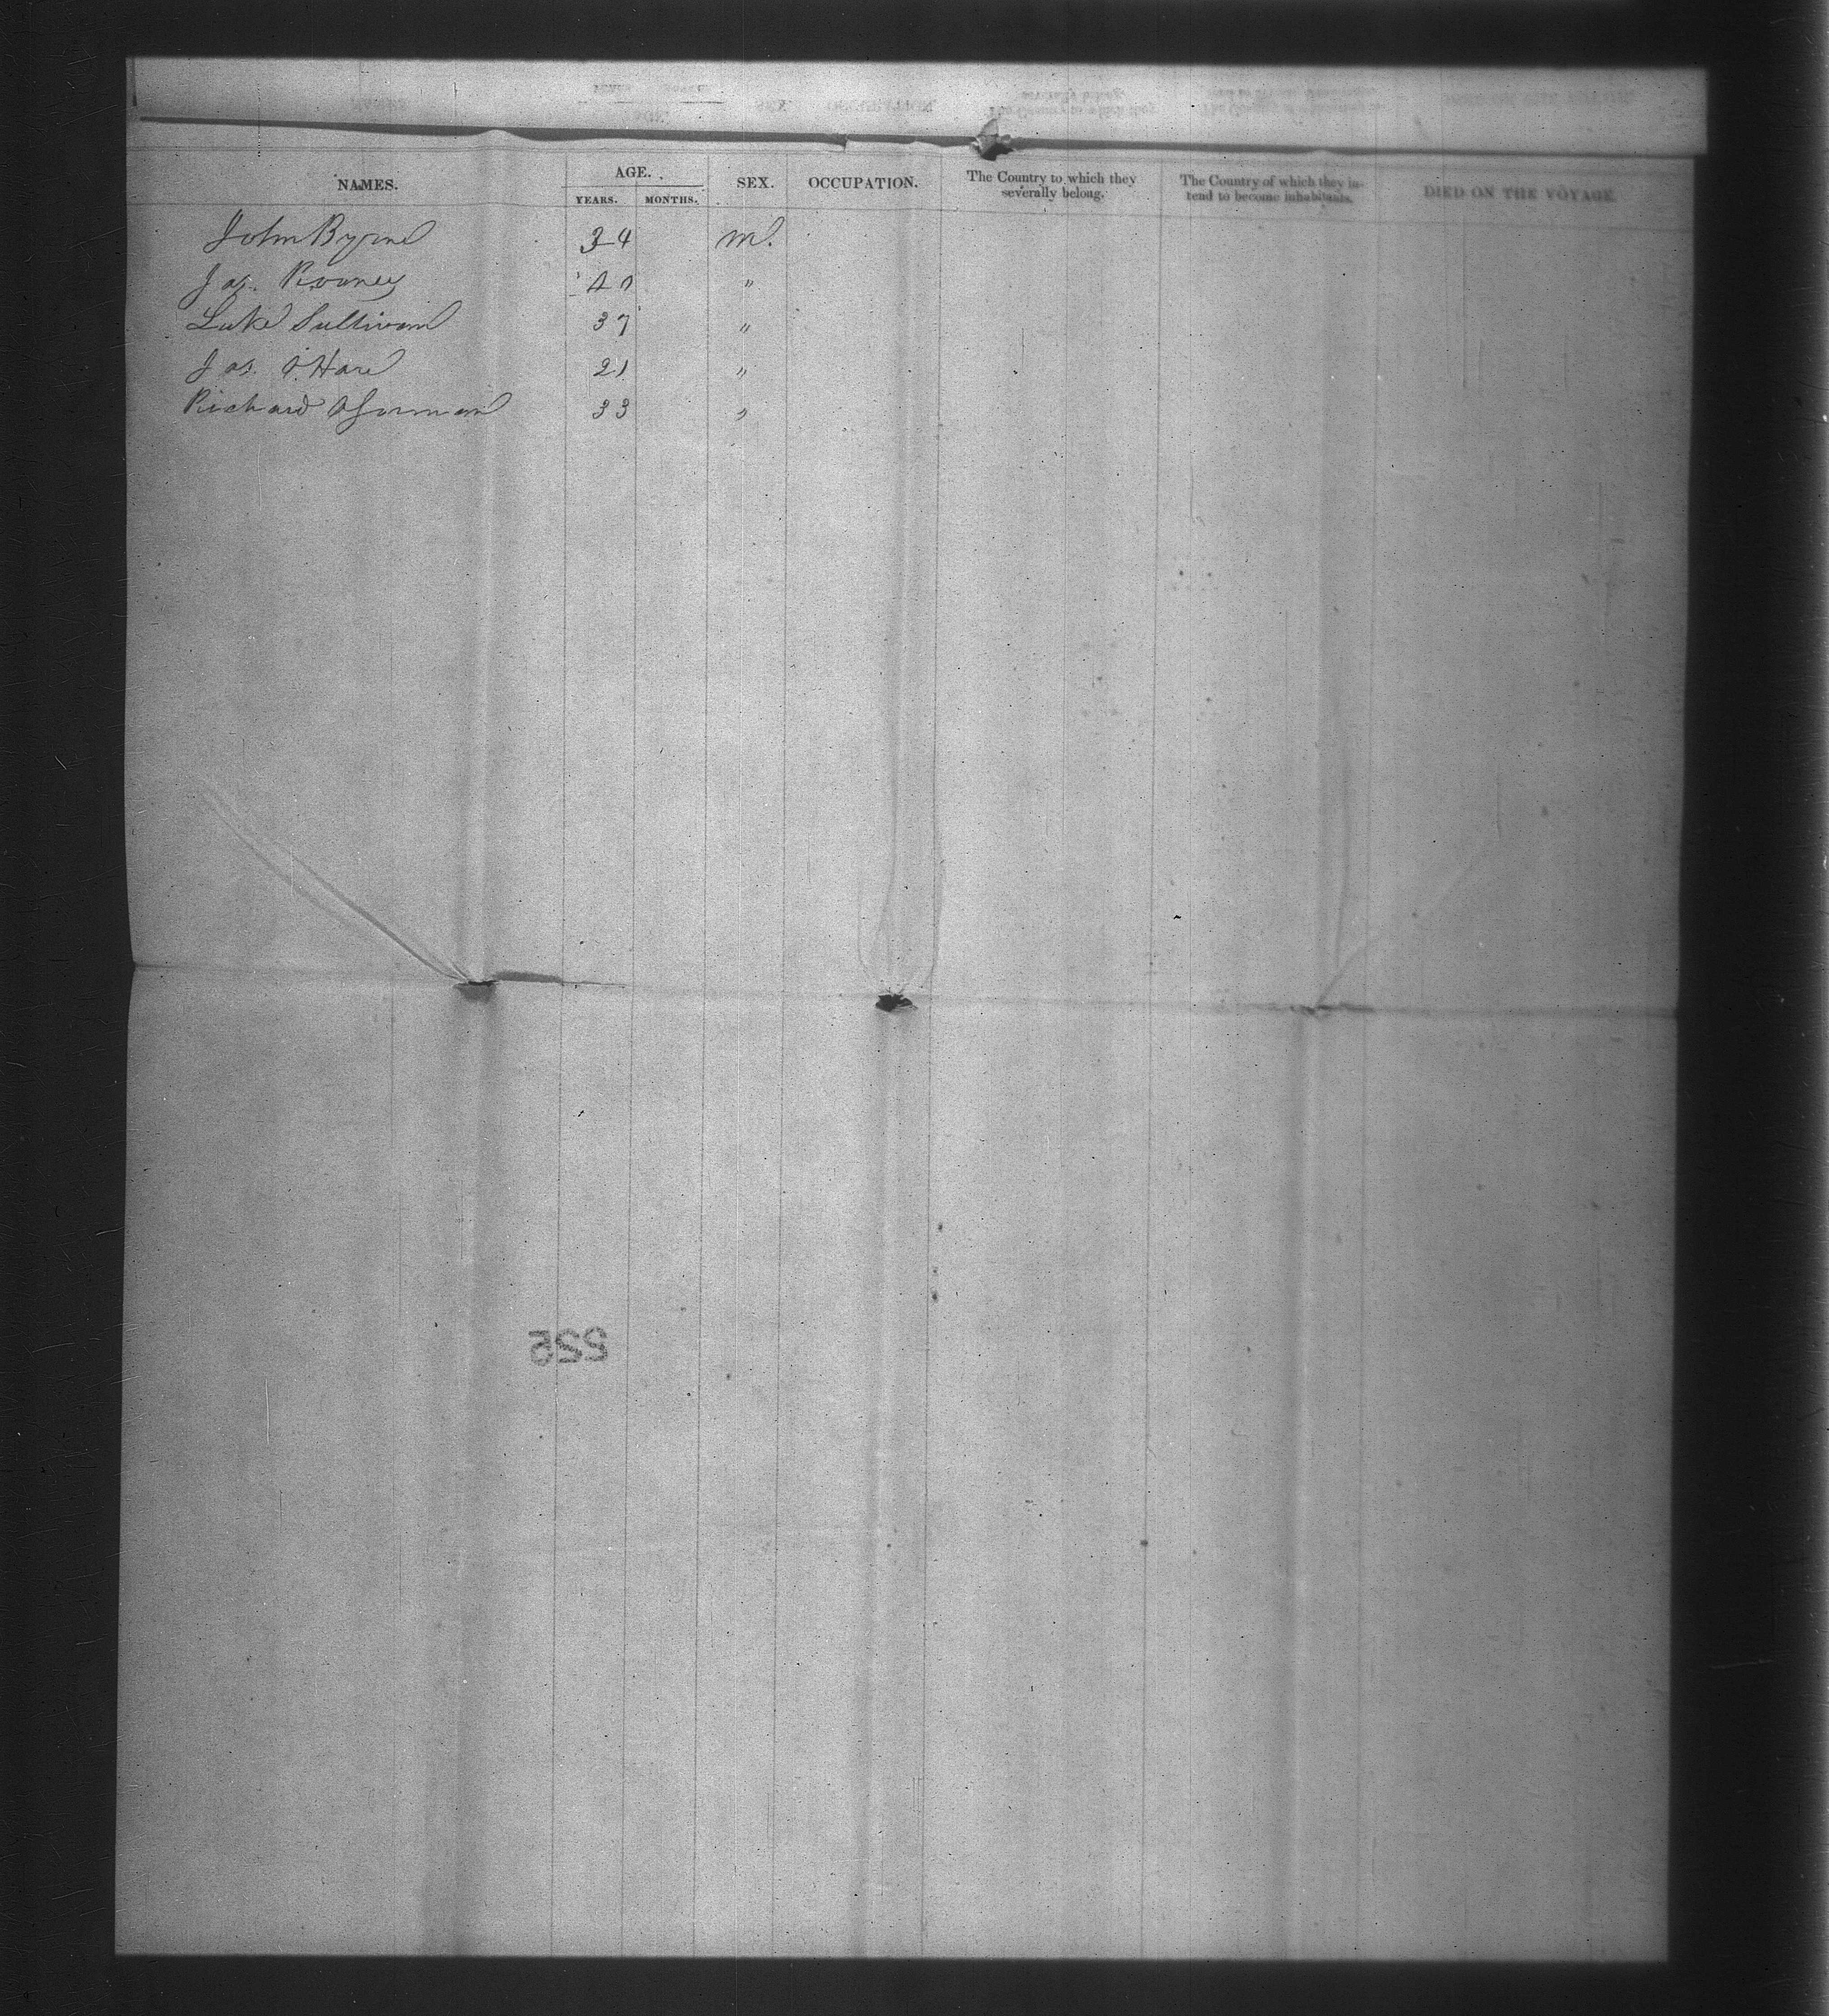 NAMES. AGE. SEX. OCCUPATION. The Country to which they severally belong. The Country of which they intend to become inhabitants. DIED ON THE VOYAGE.
YEARS. MONTHS.
John Byrne 34 m.
Jas. Rooney 40 "
Luke Sullivan 37 "
Jas. O'Hare 21 "
Richard O'Gorman 33 "
522